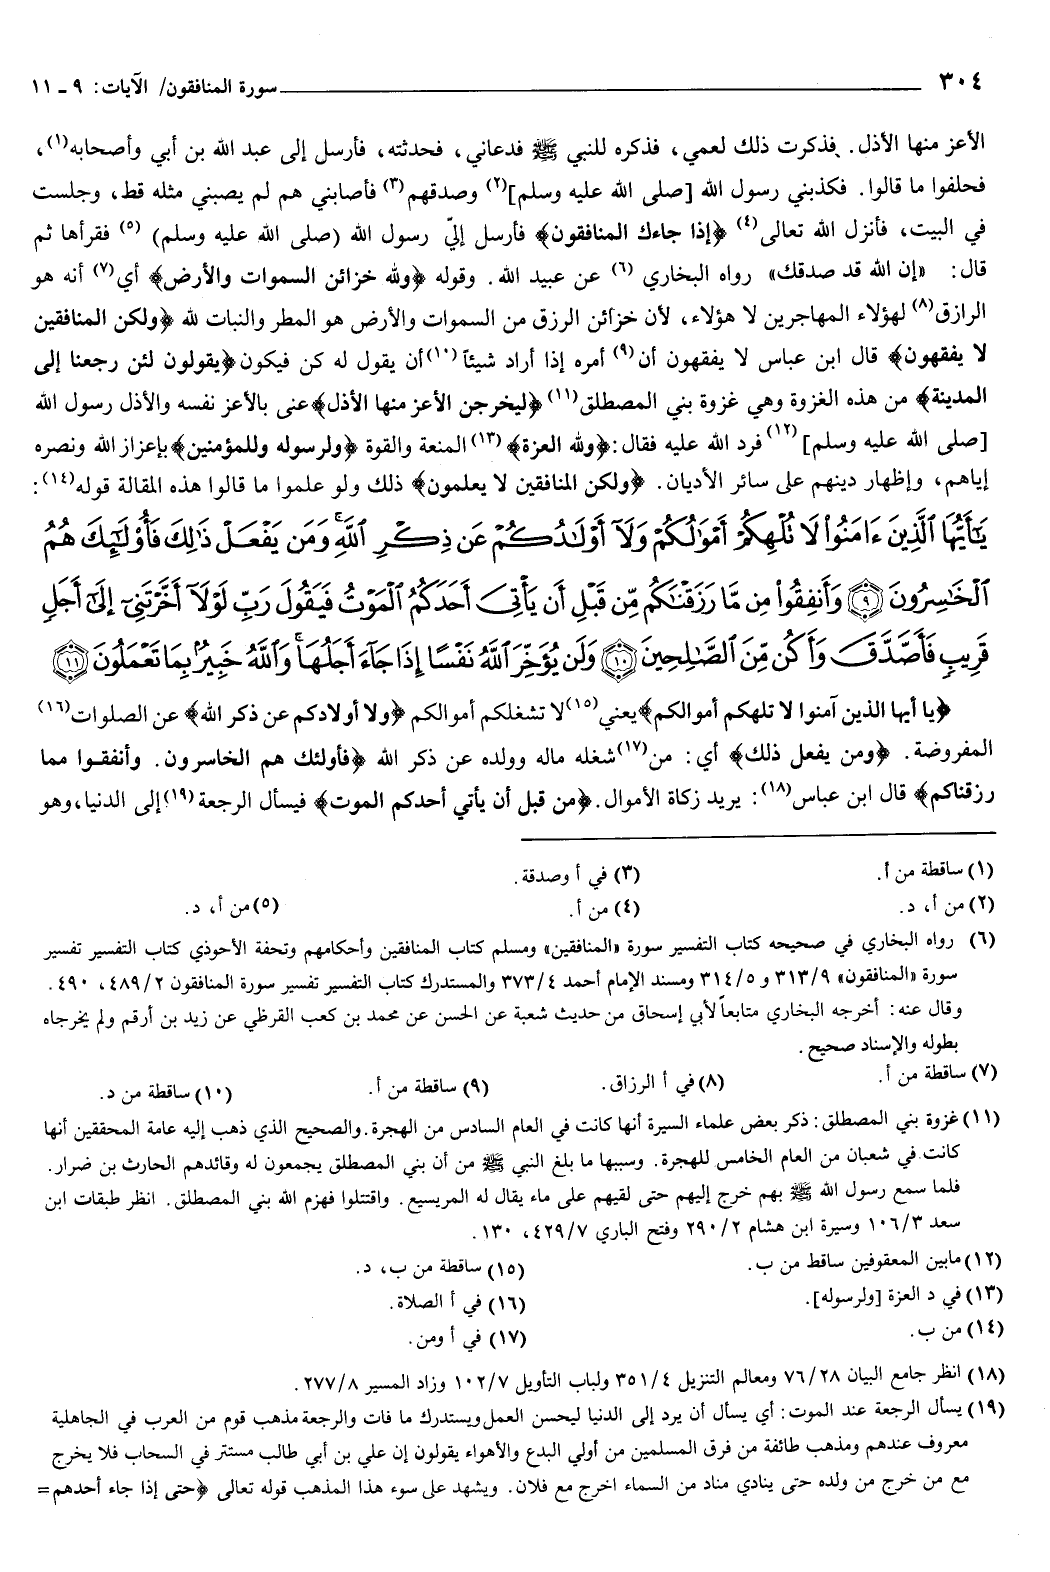 ٣٠٤ سورة المنافقون/ الآيات: ٩ ـ ١١
الأعز منها الأذل. فذكرت ذلك لعمي، فذكره للنبي ﷺ فدعاني، فحدثته، فأرسل إلى عبد الله بن أبي وأصحابه(١)،
فحلفوا ما قالوا. فكذبني رسول الله [صلى الله عليه وسلم](٢) وصدقهم(٣) فأصابني هم لم يصبني مثله قط، وجلست
في البيت، فأنزل الله تعالى(٤) ﴿إذا جاءك المنافقون﴾ فأرسل إليّ رسول الله (صلى الله عليه وسلم) (٥) فقرأها ثم
قال: «إن الله قد صدقك» رواه البخاري (٦) عن عبيد الله. وقوله ﴿ولله خزائن السموات والأرض﴾ أي(٧) أنه هو
الرازق(٨) لهؤلاء المهاجرين لا هؤلاء، لأن خزائن الرزق من السموات والأرض هو المطر والنبات لله ﴿ولكن المنافقين
لا يفقهون﴾ قال ابن عباس لا يفقهون أن(٩) أمره إذا أراد شيئاً (١٠) أن يقول له كن فيكون ﴿يقولون لئن رجعنا إلى
المدينة﴾ من هذه الغزوة وهي غزوة بني المصطلق(١١) ﴿ليخرجن الأعز منها الأذل﴾ عنى بالأعز نفسه والأذل رسول الله
[صلى الله عليه وسلم](١٢) فرد الله عليه فقال: ﴿ولله العزة﴾ (١٣) المنعة والقوة ﴿ولرسوله وللمؤمنين﴾ بإعزاز الله ونصره
إياهم، وإظهار دينهم على سائر الأديان. ﴿ولكن المنافقين لا يعلمون﴾ ذلك ولو علموا ما قالوا هذه المقالة قوله(١٤):
يَٰٓأَيُّهَا ٱلَّذِينَ ءَامَنُوا۟ لَا تُلْهِكُمْ أَمْوَٰلُكُمْ وَلَآ أَوْلَٰدُكُمْ عَن ذِكْرِ ٱللَّهِ ۚ وَمَن يَفْعَلْ ذَٰلِكَ فَأُو۟لَٰٓئِكَ هُمُ
ٱلْخَٰسِرُونَ ٩ وَأَنفِقُوا۟ مِن مَّا رَزَقْنَٰكُم مِّن قَبْلِ أَن يَأْتِىَ أَحَدَكُمُ ٱلْمَوْتُ فَيَقُولَ رَبِّ لَوْلَآ أَخَّرْتَنِىٓ إِلَىٰٓ أَجَلٍ
قَرِيبٍ فَأَصَّدَّقَ وَأَكُن مِّنَ ٱلصَّٰلِحِينَ ١٠ وَلَن يُؤَخِّرَ ٱللَّهُ نَفْسًا إِذَا جَآءَ أَجَلُهَا ۚ وَٱللَّهُ خَبِيرٌۢ بِمَا تَعْمَلُونَ ١١
﴿يا أيها الذين آمنوا لا تلهكم أموالكم﴾ يعني(١٥) لا تشغلكم أموالكم ﴿ولا أولادكم عن ذكر الله﴾ عن الصلوات(١٦)
المفروضة. ﴿ومن يفعل ذلك﴾ أي: من(١٧) شغله ماله وولده عن ذكر الله ﴿فأولئك هم الخاسرون. وأنفقوا مما
رزقناكم﴾ قال ابن عباس(١٨): يريد زكاة الأموال. ﴿من قبل أن يأتي أحدكم الموت﴾ فيسأل الرجعة (١٩) إلى الدنيا، وهو
(١) ساقطة من أ. (٣) في أ وصدقة.
(٢) من أ، د. (٤) من أ. (٥) من أ، د.
(٦) رواه البخاري في صحيحه كتاب التفسير سورة «المنافقين» ومسلم كتاب المنافقين وأحكامهم وتحفة الأحوذي كتاب التفسير تفسير
سورة «المنافقون» ٣١٣/٩ و ٣١٤/٥ ومسند الإمام أحمد ٣٧٣/٤ والمستدرك كتاب التفسير تفسير سورة المنافقون ٤٨٩/٢، ٤٩٠.
وقال عنه: أخرجه البخاري متابعاً لأبي إسحاق من حديث شعبة عن الحسن عن محمد بن كعب القرظي عن زيد بن أرقم ولم يخرجاه
بطوله والإسناد صحيح.
(٧) ساقطة من أ. (٨) في أ الرزاق. (٩) ساقطة من أ. (١٠) ساقطة من د.
(١١) غزوة بني المصطلق: ذكر بعض علماء السيرة أنها كانت في العام السادس من الهجرة. والصحيح الذي ذهب إليه عامة المحققين أنها
كانت في شعبان من العام الخامس للهجرة. وسببها ما بلغ النبي ﷺ من أن بني المصطلق يجمعون له وقائدهم الحارث بن ضرار.
فلما سمع رسول الله ﷺ بهم خرج إليهم حتى لقيهم على ماء يقال له المريسيع. واقتتلوا فهزم الله بني المصطلق. انظر طبقات ابن
سعد ١٠٦/٣ وسيرة ابن هشام ٢٩٠/٢ وفتح الباري ٤٢٩/٧، ١٣٠.
(١٢) مابين المعقوفين ساقط من ب. (١٥) ساقطة من ب، د.
(١٣) في د العزة [ولرسوله]. (١٦) في أ الصلاة.
(١٤) من ب. (١٧) في أ ومن.
(١٨) انظر جامع البيان ٧٦/٢٨ ومعالم التنزيل ٣٥١/٤ ولباب التأويل ١٠٢/٧ وزاد المسير ٢٧٧/٨.
(١٩) يسأل الرجعة عند الموت: أي يسأل أن يرد إلى الدنيا ليحسن العمل ويستدرك ما فات والرجعة مذهب قوم من العرب في الجاهلية
معروف عندهم ومذهب طائفة من فرق المسلمين من أولي البدع والأهواء يقولون إن علي بن أبي طالب مستتر في السحاب فلا يخرج
مع من خرج من ولده حتى ينادي مناد من السماء اخرج مع فلان. ويشهد على سوء هذا المذهب قوله تعالى ﴿حتى إذا جاء أحدهم=